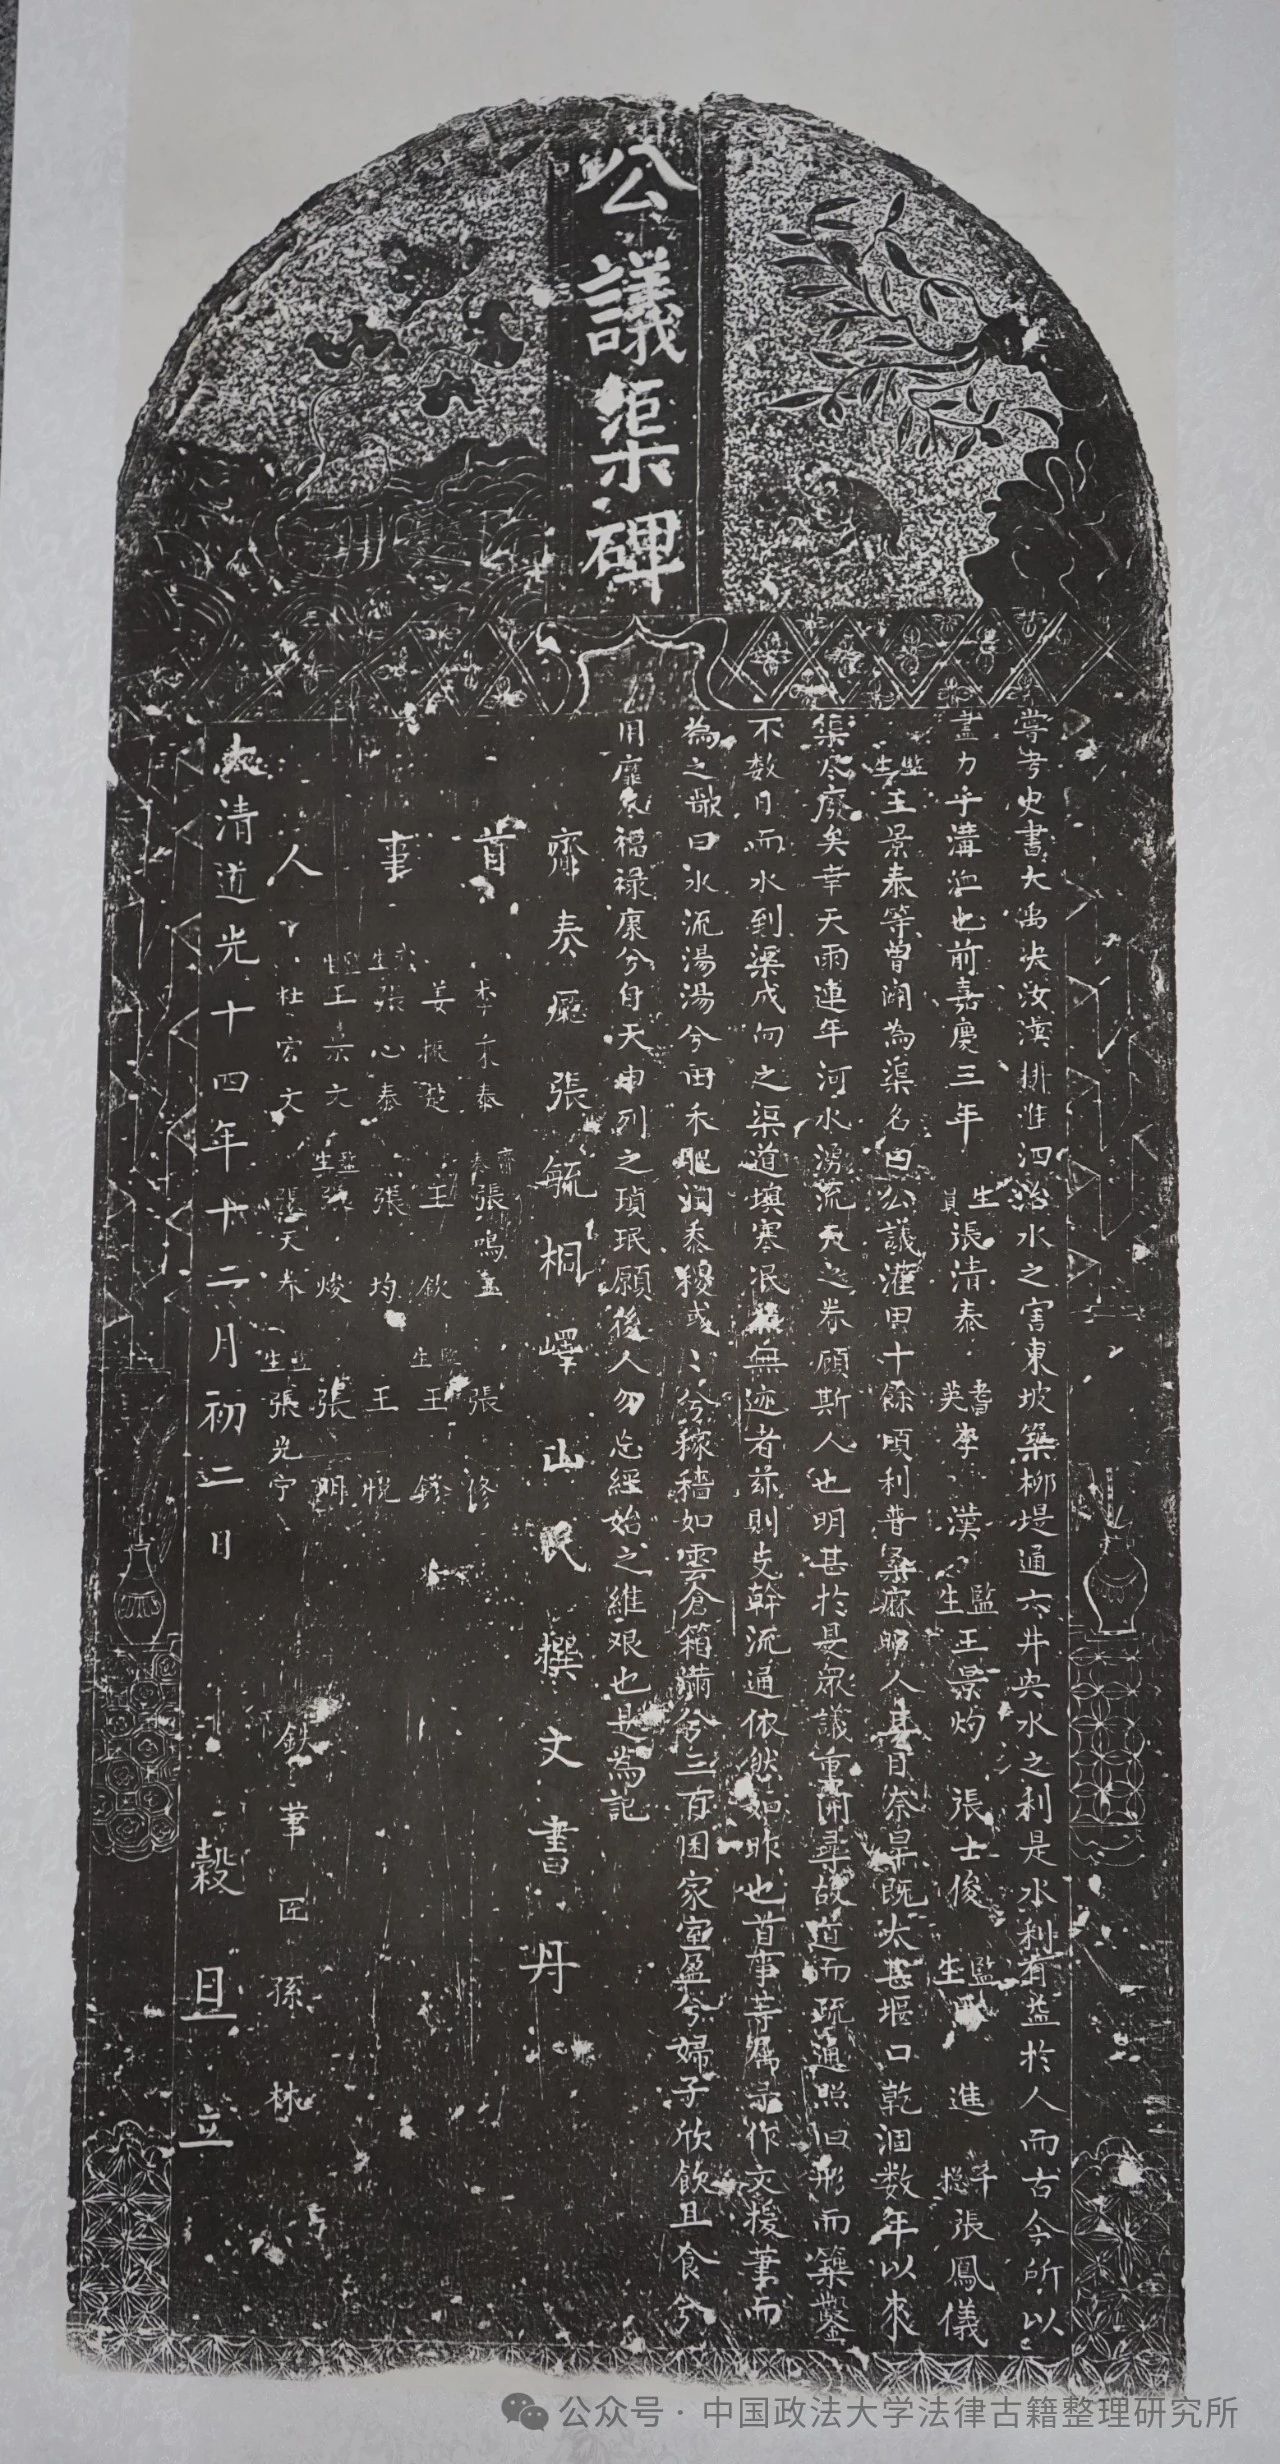 公議渠碑
嘗考史書大禹決汝漢排淮泗治水之害東坡築柳堤通六井興水之利是水利有益於人而古今所以
盡力乎溝洫也前嘉慶三年生員張清泰耆英李漢監生王景灼張士俊監生進千總張鳳儀
監生王景泰等曾開為渠名曰公議灌田十餘頃利普桑麻昭人耳目奈旱既太甚堰口乾涸数年以來
渠仝廢矣幸天雨連年河水湧流天之眷顧斯人也明甚於是眾議重開尋故道而疏通照旧形而築鑿
不数日而水到渠成向之渠道填塞泯無迹者茲則支幹流通依然如昨也首事等屬予作文援筆而
為之歌曰水流湯湯兮田禾肥润黍稷或〻兮稼穡如雲倉箱滿兮三百囷家室盈兮婦子欣飲且食兮
用靡乂福祿康兮自天申列之瑱珉願後人勿忘經始之維艱也是為記
齋奏廳張毓桐嶧山民撰文書丹
首事人
李永泰齋奏張鳴玉張修
姜振楚王欽監生王鎖
生張心泰張均王悅
監生王示文監生張焌張明
杜宏文張天眷監生張光宁
鉄筆匠孫林
大清道光十四年十二月初二日穀旦立
公众号·中国政法大学法律古籍整理研究所